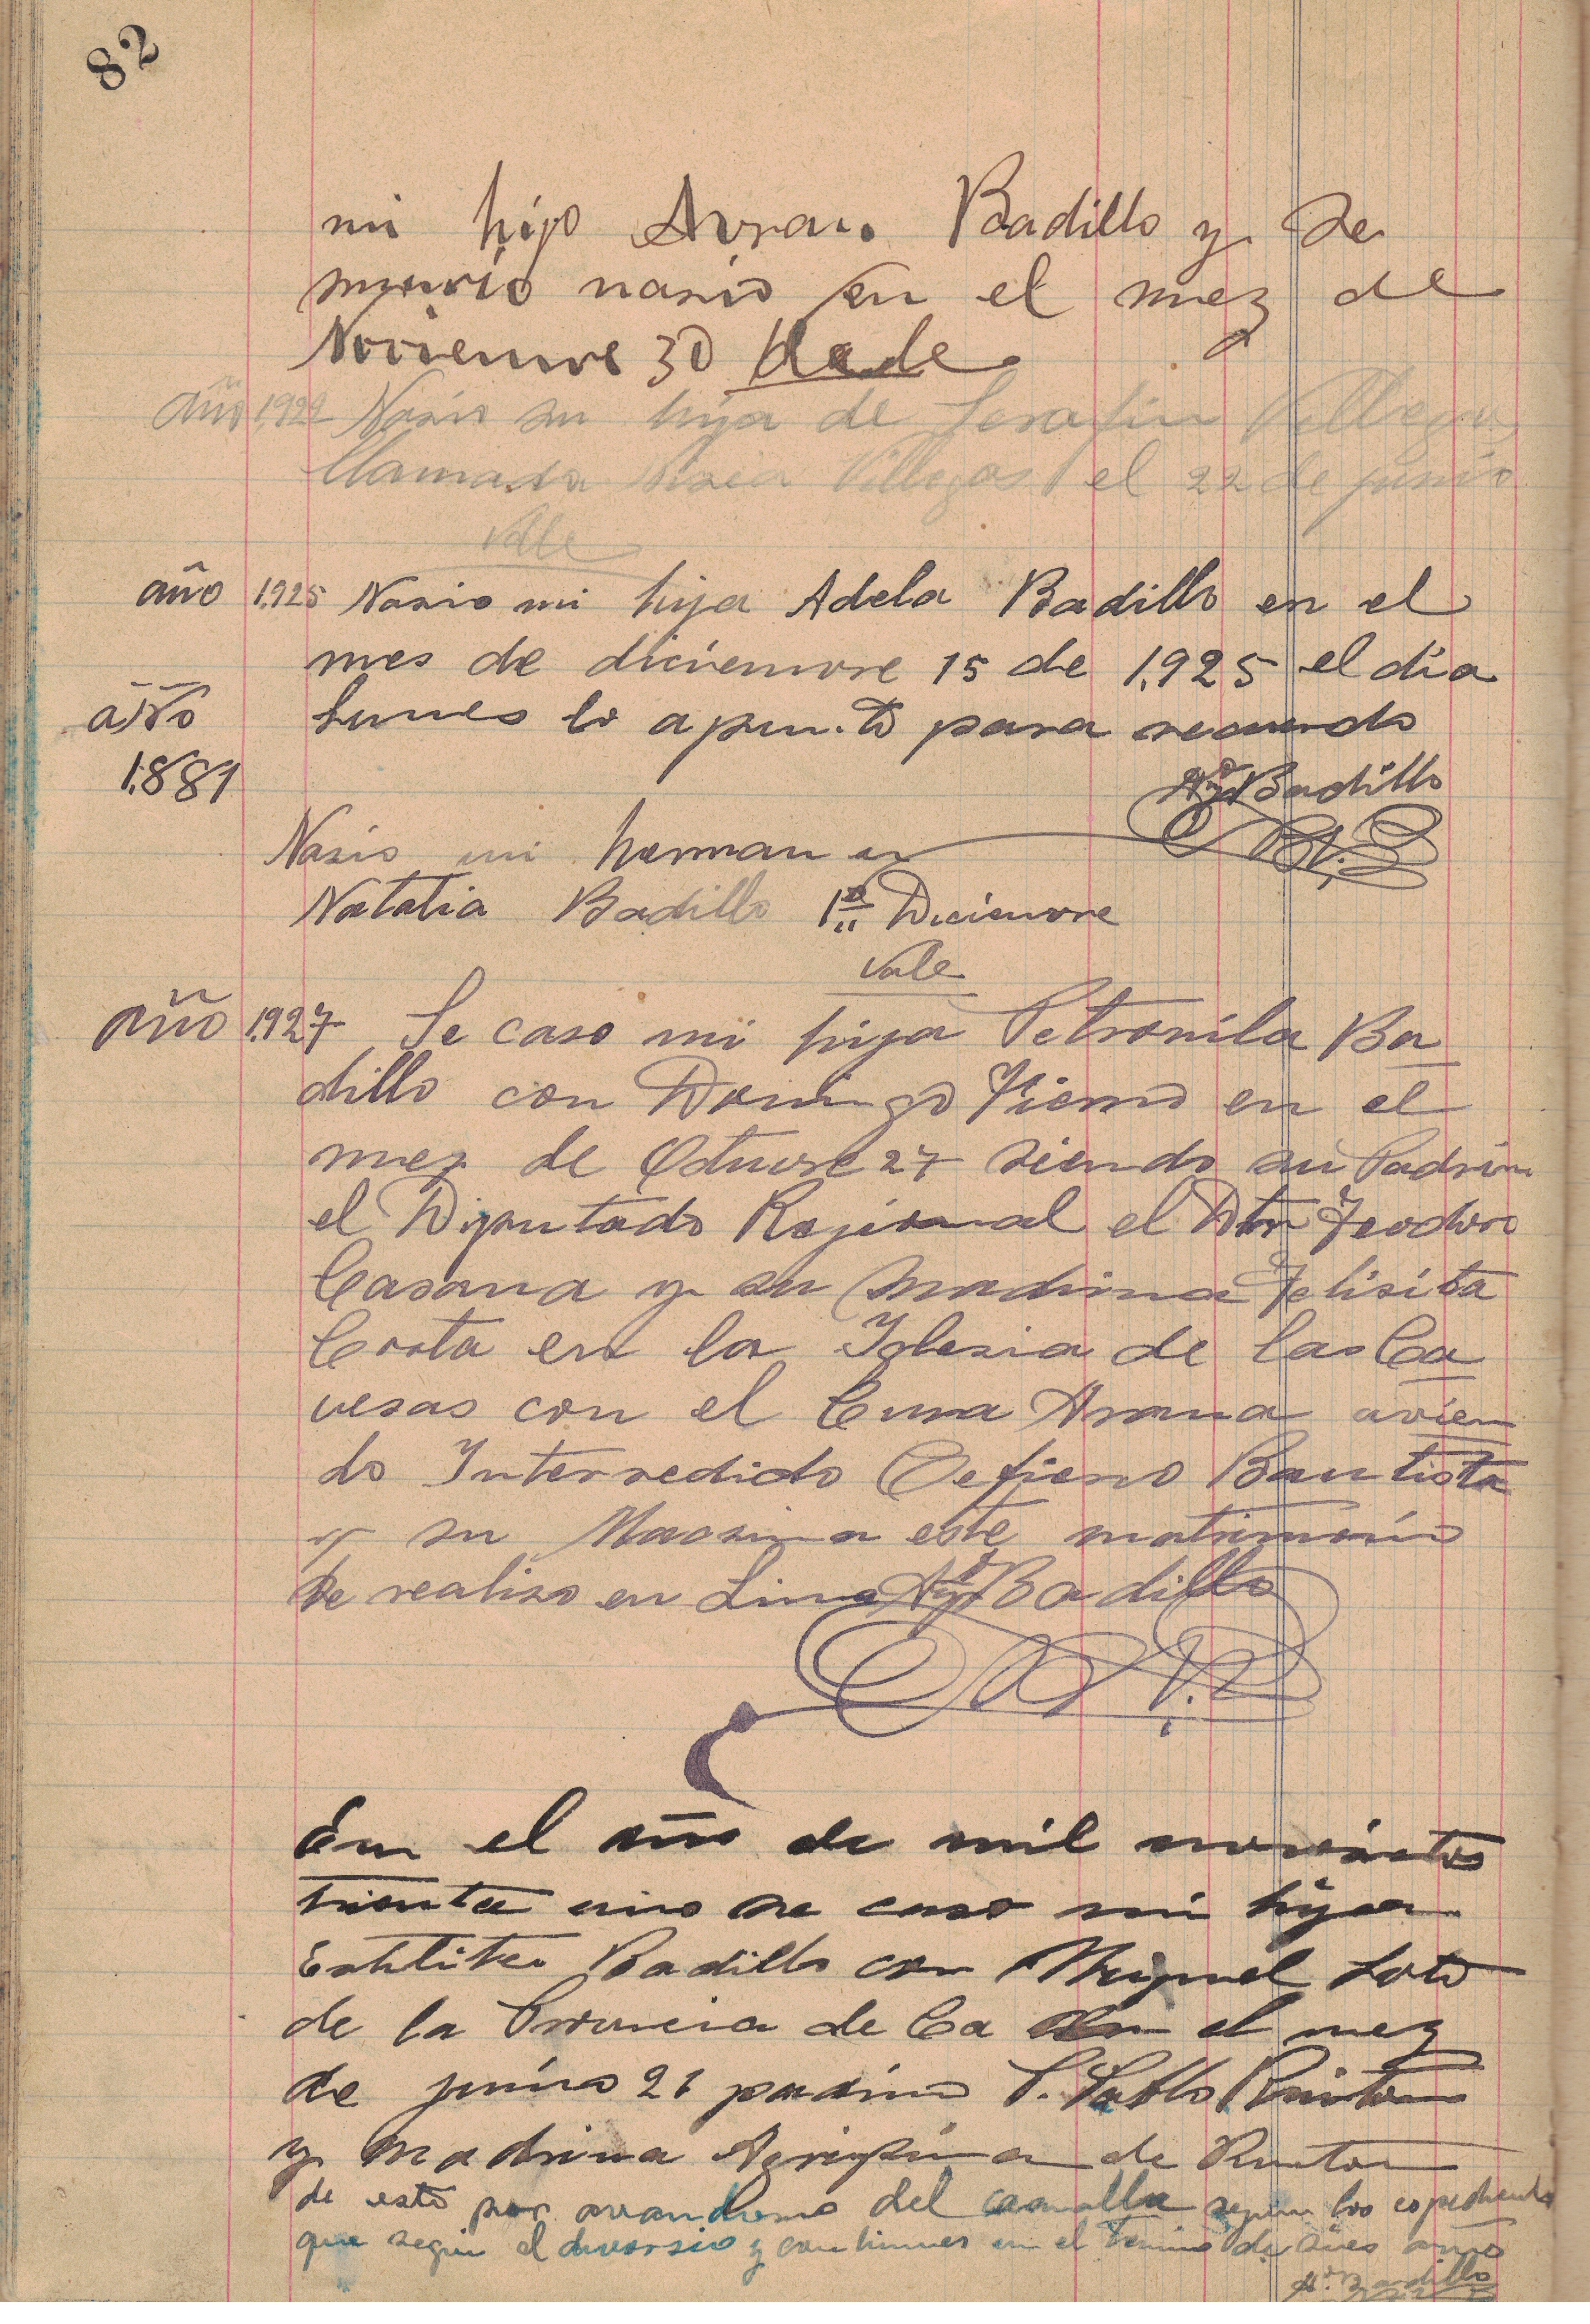 82
mi hijo Avran. Badillo y se
murio nasio en el mez de
Novienvre 30 Vale
año 1,922 Nasio su hija de Serafin Villegas
llamada Villegas el 22 de junio
Valle
año 1,925 Nasio mi hija Adela Badillo en el
mes de dicienvre 15 de 1,925 el dia
lunes lo apunto para recuerdo
año
1,881
Badillo
Nasio mi hermana
Natalia Badillo 1º Dicienvre
Vale
año 1,927 Se caso mi hija Petronila Ba
dillo con Domingo Fierro en el
mez de Octuvre 27 siendo su Padrin
el Diputado Rejional el Dtor Teodoro
Casana y su madrina Felisita
Costa en la Iglesia de las Ca
vesas con el Cura Arana avien
do Interredido Ceferino Bautista
y su Maosima este matrimonio
se realiso en Lima Badillo
En el año de mil novecientos
trienta uno se caso mi hija
Badillo con Miguel Soto
de la Provincia de Ca en el mez
de junio 21 padrino P. Pablo
y Madrina Agripina de
de esto por avandono del canalla segun los espedientes
que segui el divorsio y en el termino de años
Badillo